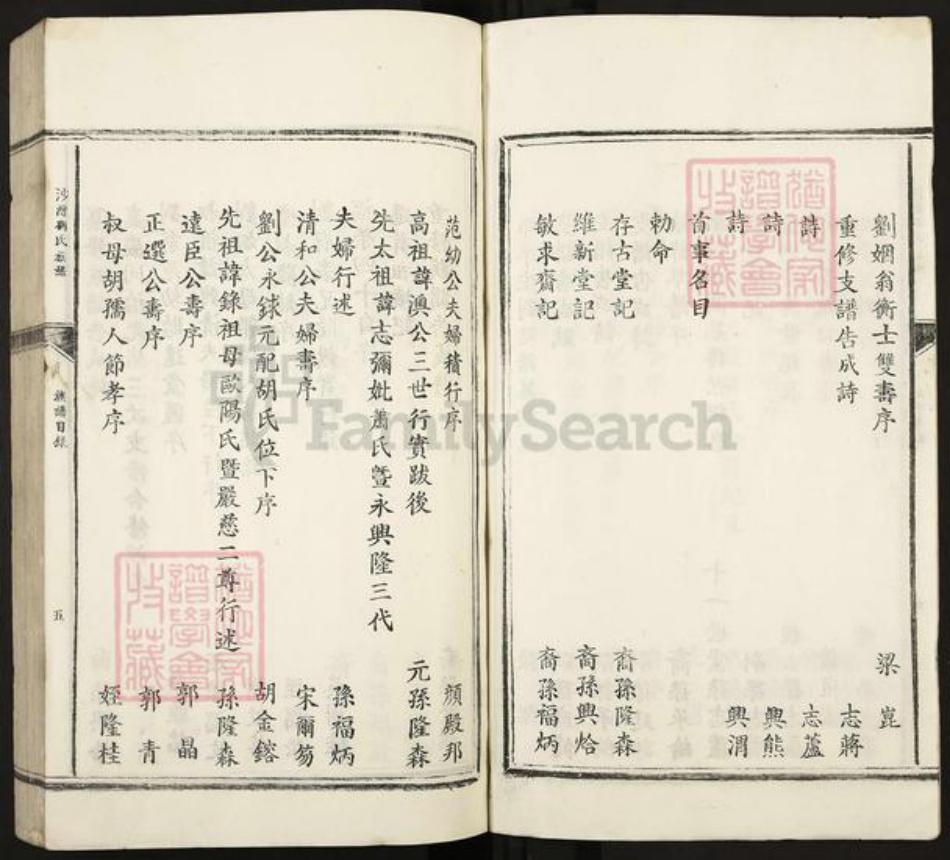 劉姻翁衡士雙壽序 梁崑
重修支譜告成詩 志蔣
詩 志蘆
詩 興熊
詩 興渭
首事名目
勅命
存古堂記 裔孫隆森
維新堂記 裔孫興烚
敏求齋記 裔孫福炳
范幼公夫婦積行序 顏殿邦
高祖諱澳公三世行實跋後 元孫隆森
先太祖諱志彌妣蕭氏暨永興隆三代
夫婦行述 孫福炳
清和公夫婦壽序 宋爾笏
劉公永銶元配胡氏位下序 胡金鎔
先祖諱錄祖母歐陽氏暨嚴慈二尊行述 孫隆森
遠臣公壽序 郭晶
正選公壽序 郭青
叔母胡孺人節孝序 姪隆桂
族譜目錄
五
FamilySearch
譜學會
收藏
譜學會
收藏